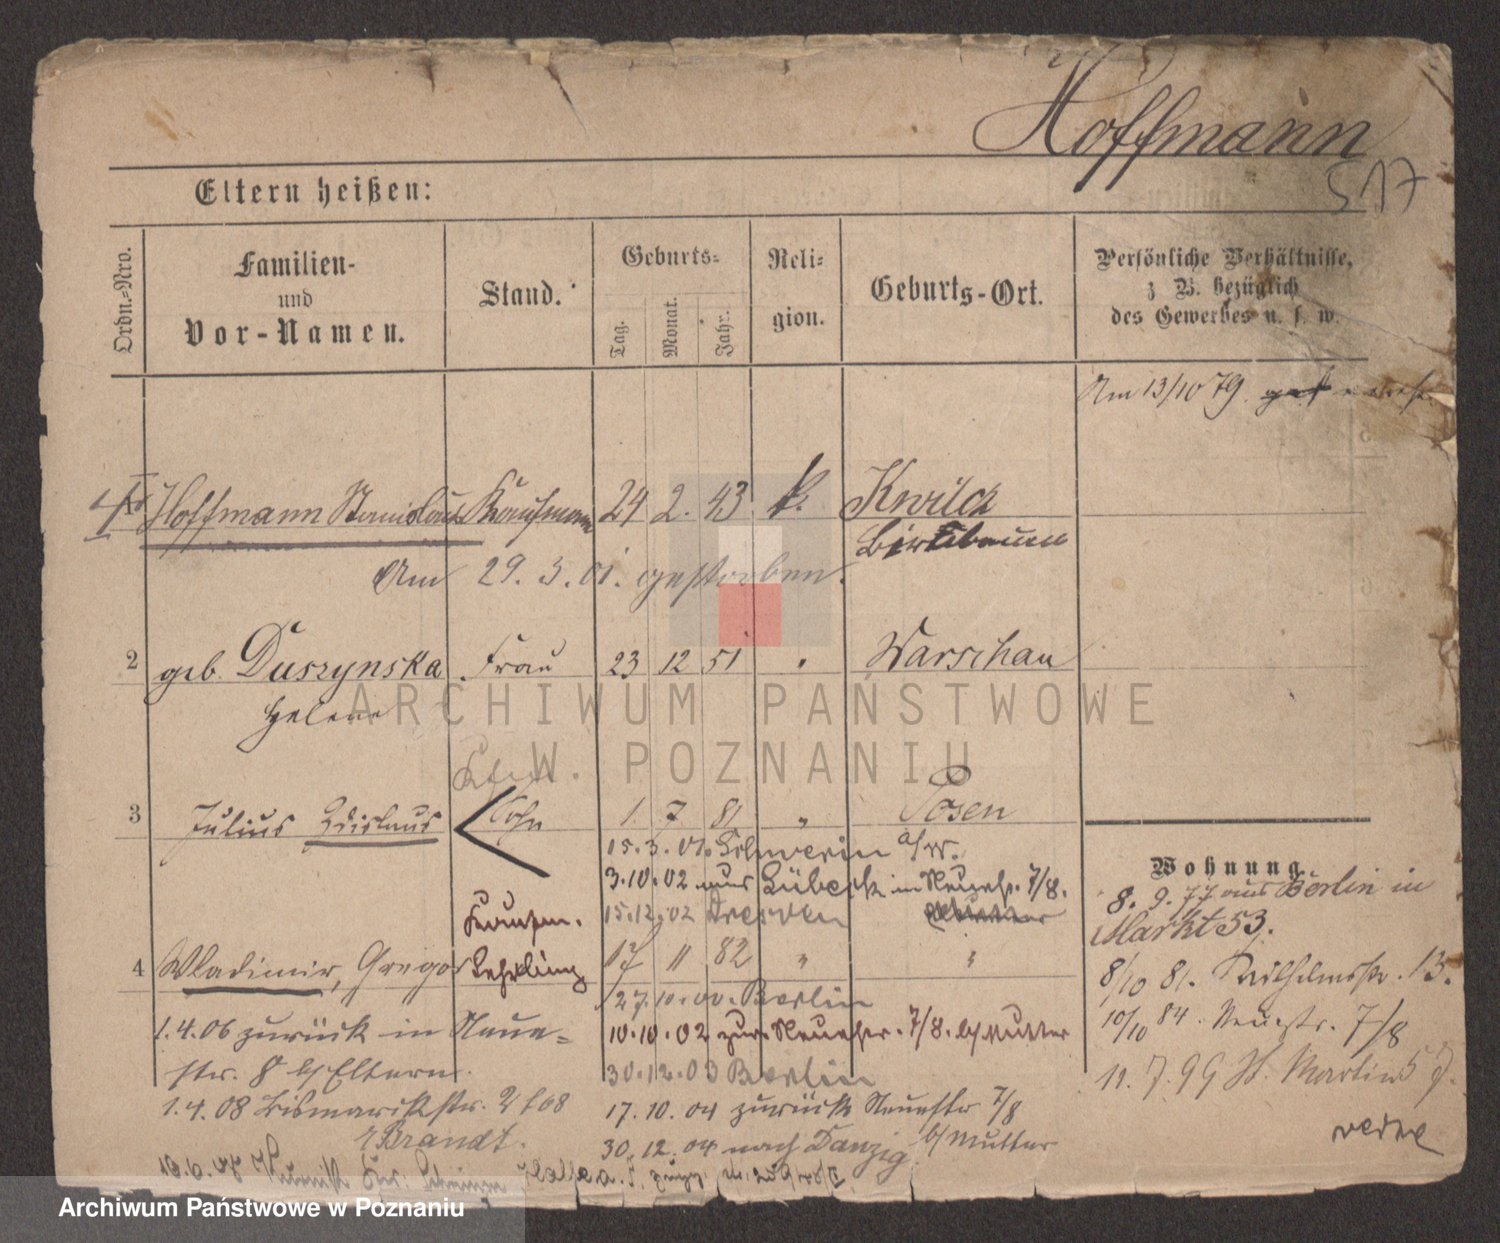 Hoffmann
517
Eltern heißen:
Ordn.-Nro.
Familien-
und
Vor-Namen.
Stand.
Geburts-
Tag.
Monat.
Jahr.
Reli-
gion.
Geburts-Ort.
Persönliche Verhältnisse,
z. B. bezüglich
des Gewerbes u. s. w.
Am 13/10 79
1 Hoffmann Stanislaus Kaufmann 24 2. 43 k. Kwilcz
Birnbaum
Am 29. 3. 01. gestorben.
2 geb. Duszynska Frau 23 12 51 Warschau
Helene
3 Julius Zdislaus Sohn 1. 7 81 " Posen
15. 3. 01. Schwerin a/W.
3.10.02 aus Lübeck in Neuestr. 7/8.
15.12.02 Dresden
4 Wladimir, Gregor Kaufm. Lehrling 17 11 82 " "
27.10.00. Berlin
10.10.02 zur. Neuestr. 7/8. b/Mutter
30.12.03 Berlin
17.10.04 zurück Neuestr 7/8
30.12.04 nach Danzig b/Mutter
1.4.06 zurück in Neue-
str. 8 b/Eltern.
1.4.08 Bismarckstr. 2
Brandt.
Wohnung
8. 9. 77 aus Berlin in
Markt 53.
8/10 81. Wilhelmstr. 13.
10/10 84. Neuestr. 7/8
11. 7. 99 St. Martin 57.
verte
ARCHIWUM PAŃSTWOWE
W POZNANIU
Archiwum Państwowe w Poznaniu